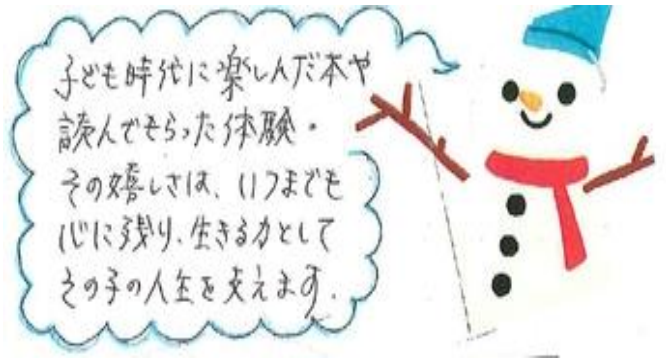 子ども時代に楽しんだ本や
読んでもらった体験。
その嬉しさは、いつまでも
心に残り、生きる力として
その子の人生を支えます。